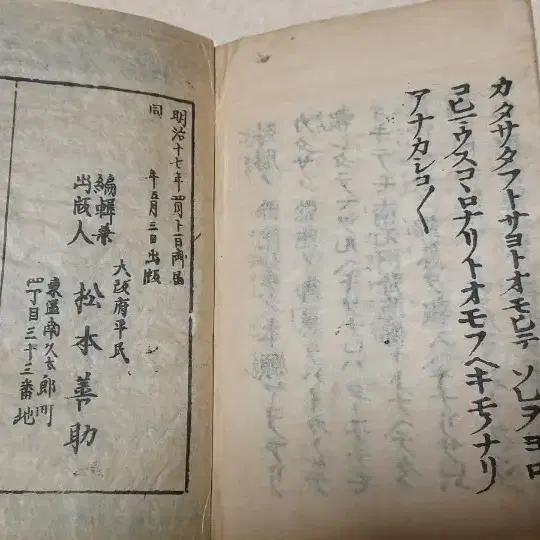 カタサタフトサヨトオモヒテ ソレヲヨロ
コヒニウスコヽロナリトオモフヘキモノナリ
アナカシコ〱
明治十七年四月十日御届
同 年五月三日出版
編輯兼
出版人
大阪府平民
松本善助
東區南久太郎町
四丁目三十三番地